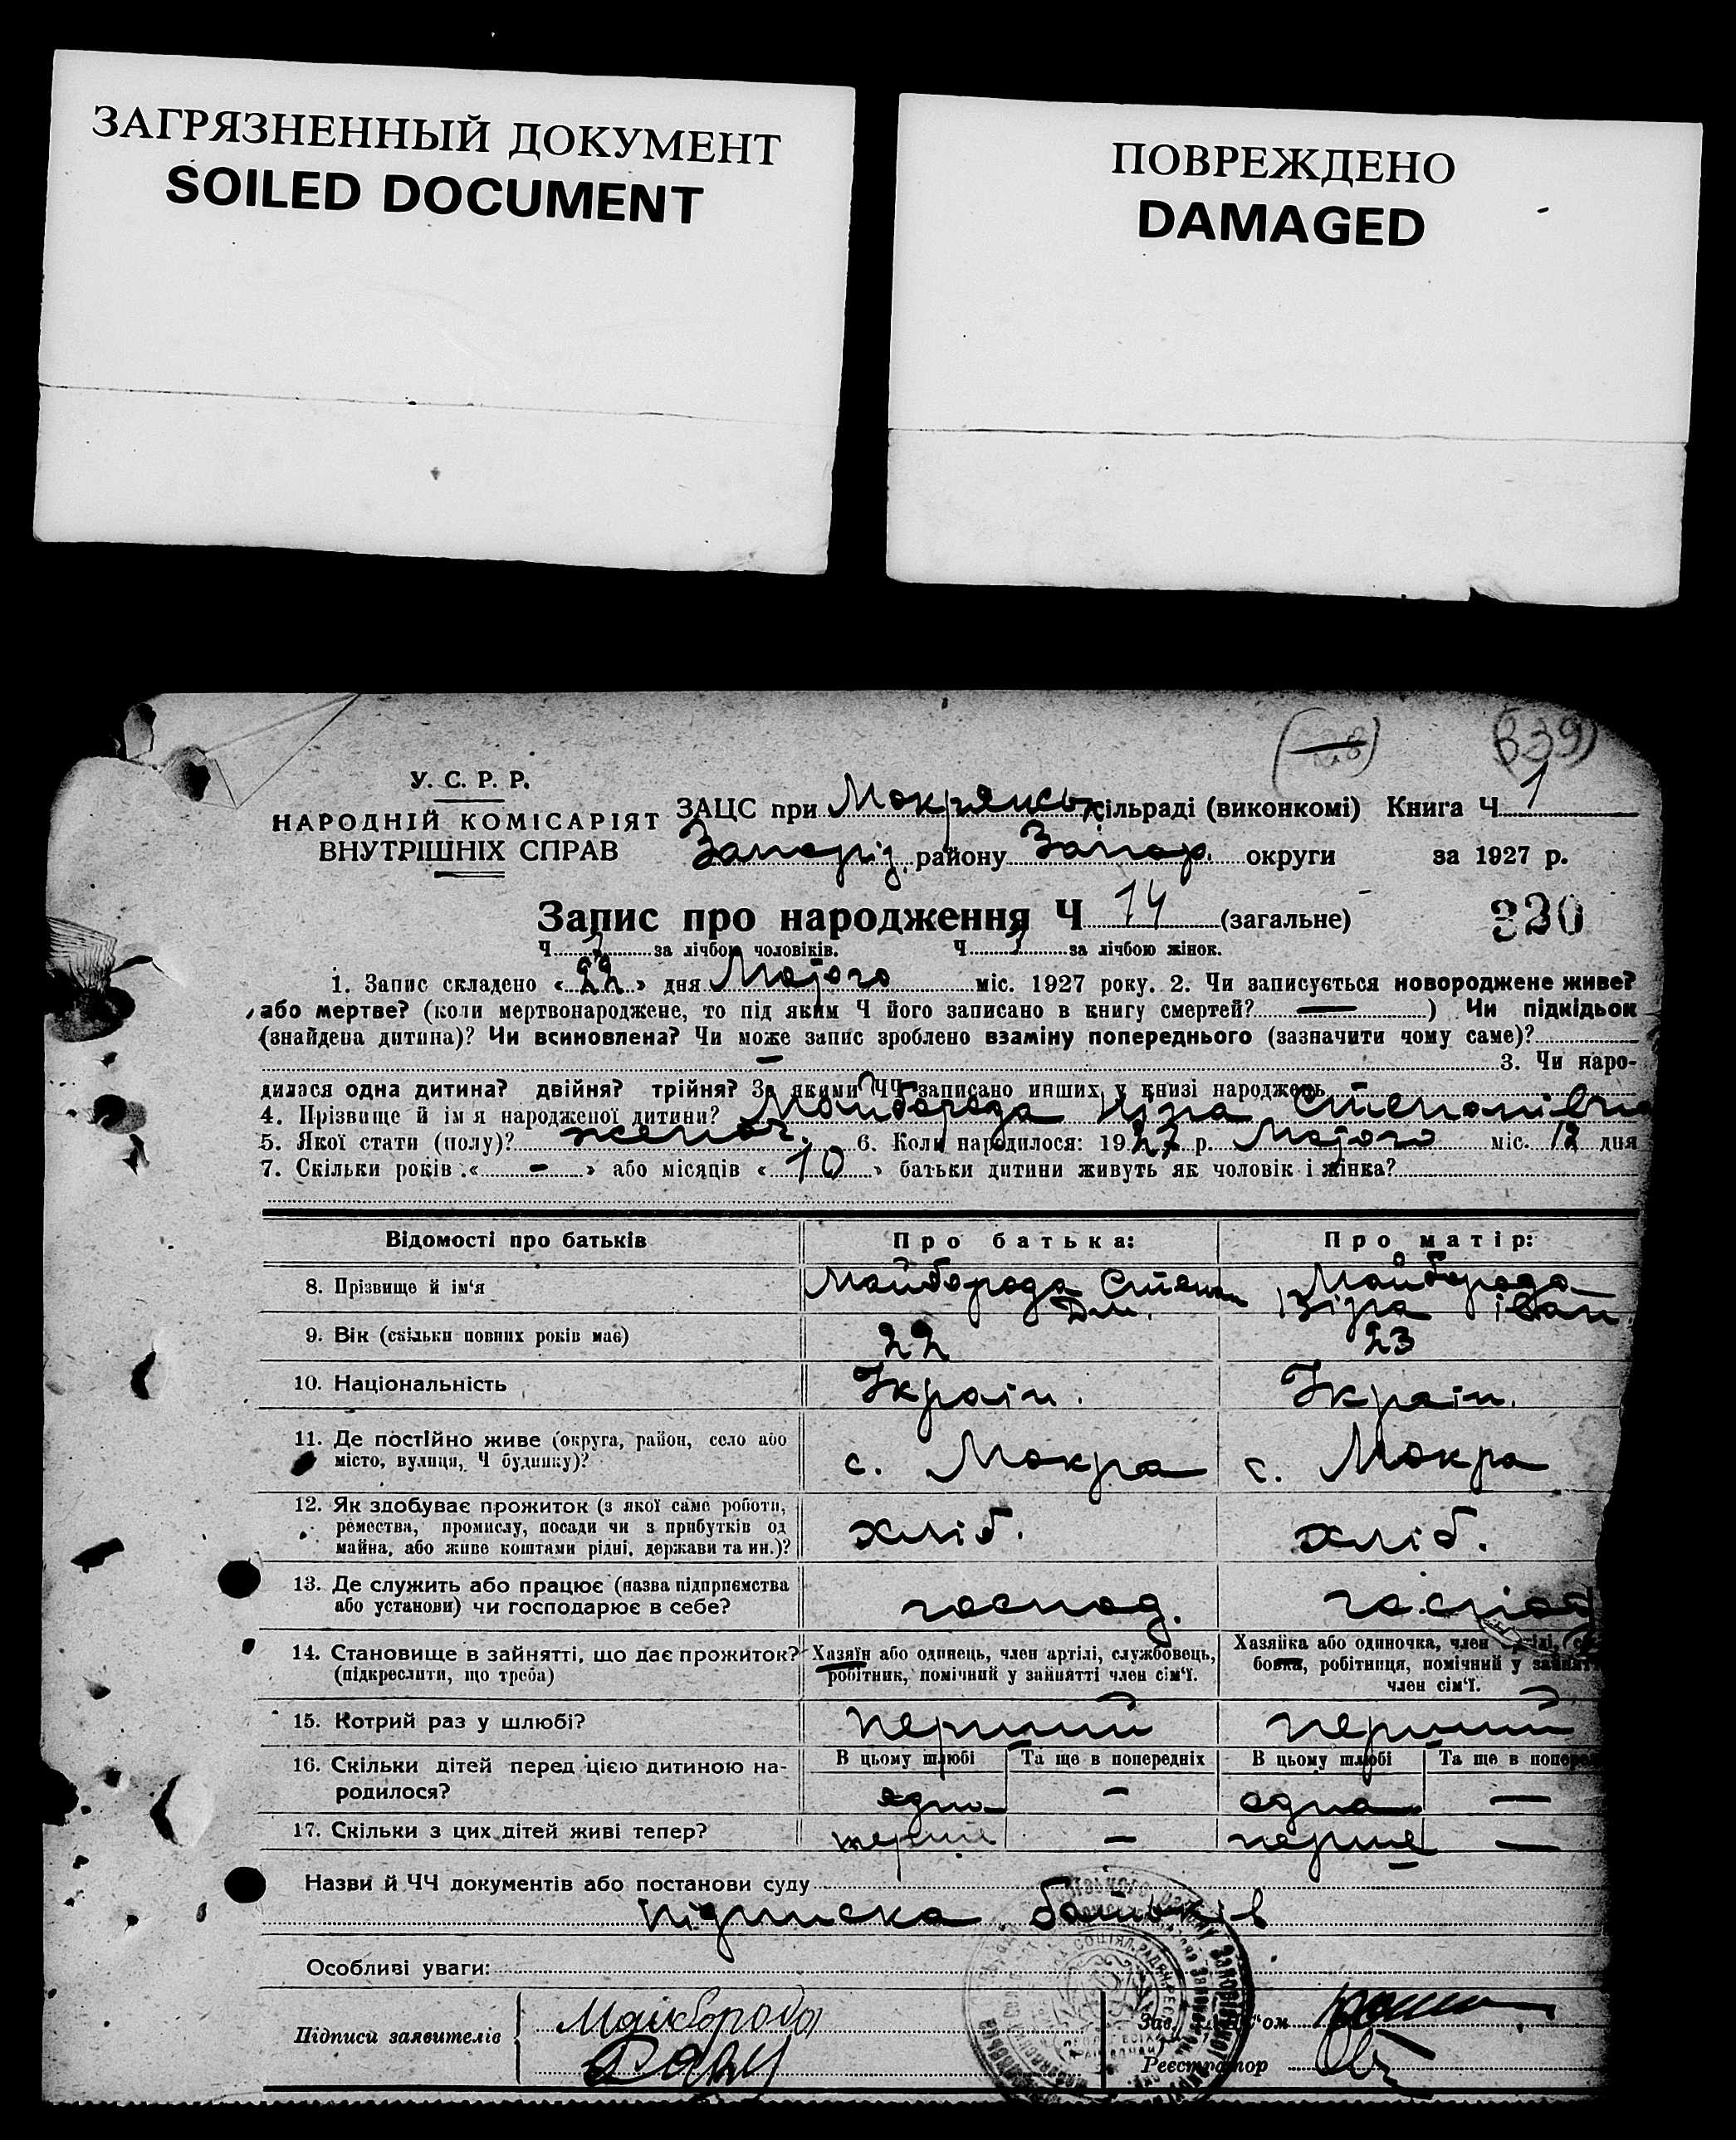 ЗАГРЯЗНЕННЫЙ ДОКУМЕНТ
SOILED DOCUMENT
ПОВРЕЖДЕНО
DAMAGED
339
У. С. Р. Р.
НАРОДНІЙ КОМІСАРІЯТ
ВНУТРІШНІХ СПРАВ
ЗАЦС при Мокрянськ сільраді (виконкомі) Книга Ч 1
Запоріз. району Запор. округи за 1927 р.
Запис про народження Ч 14 (загальне)
330
Ч за лічбою чоловіків. Ч за лічбою жінок.
1. Запис складено «22» дня Мајого міс. 1927 року. 2. Чи записується новороджене живе?
або мертве? (коли мертвонароджене, то під яким Ч його записано в книгу смертей? — ) Чи підкідьок
(знайдена дитина)? Чи всиновлена? Чи може запис зроблено взаміну попереднього (зазначити чому саме)?
— 3. Чи наро-
дилася одна дитина? двійня? трійня? За якими ЧЧ записано инших у книзі народжень
4. Прізвище й ім я народженої дитини? Майборода Степанівна
5. Якої стати (полу)? жіноч. 6. Коли народилося: 1927 р. Мајого міс. 12 дня
7. Скільки років «-» або місяців «10» батьки дитини живуть як чоловік і жінка?
Відомості про батьків Про батька: Про матір:
8. Прізвище й ім'я Майборода Степан Дми. Майборода Віра Іван
9. Вік (скільки повних років має) 22 23
10. Національність Україн. Україн.
11. Де постійно живе (округа, район, село або
місто, вулиця, Ч будинку)? с. Мокра с. Мокра
12. Як здобуває прожиток (з якої саме роботи,
ремества, промислу, посади чи з прибутків од
майна, або живе коштами рідні, держави та ин.)? хліб. хліб.
13. Де служить або працює (назва підприємства
або установи) чи господарює в себе? господ. господ
14. Становище в зайнятті, що дає прожиток? Хазяїн або одинець, член артілі, службовець, Хазяйка або одиночка, член
(підкреслити, що треба) робітник, помічний у зайнятті член сім'ї. бовка, робітниця, помічний у
член сім'ї.
15. Котрий раз у шлюбі? перший перший
16. Скільки дітей перед цією дитиною на- В цьому шлюбі Та ще в попередніх В цьому шлюбі Та ще в
родилося? одна — одна —
17. Скільки з цих дітей живі тепер? — перше —
Назви й ЧЧ документів або постанови суду
підписка батьків
Особливі уваги:
Підписи заявителів Майборода
Зав.
Реєстратор